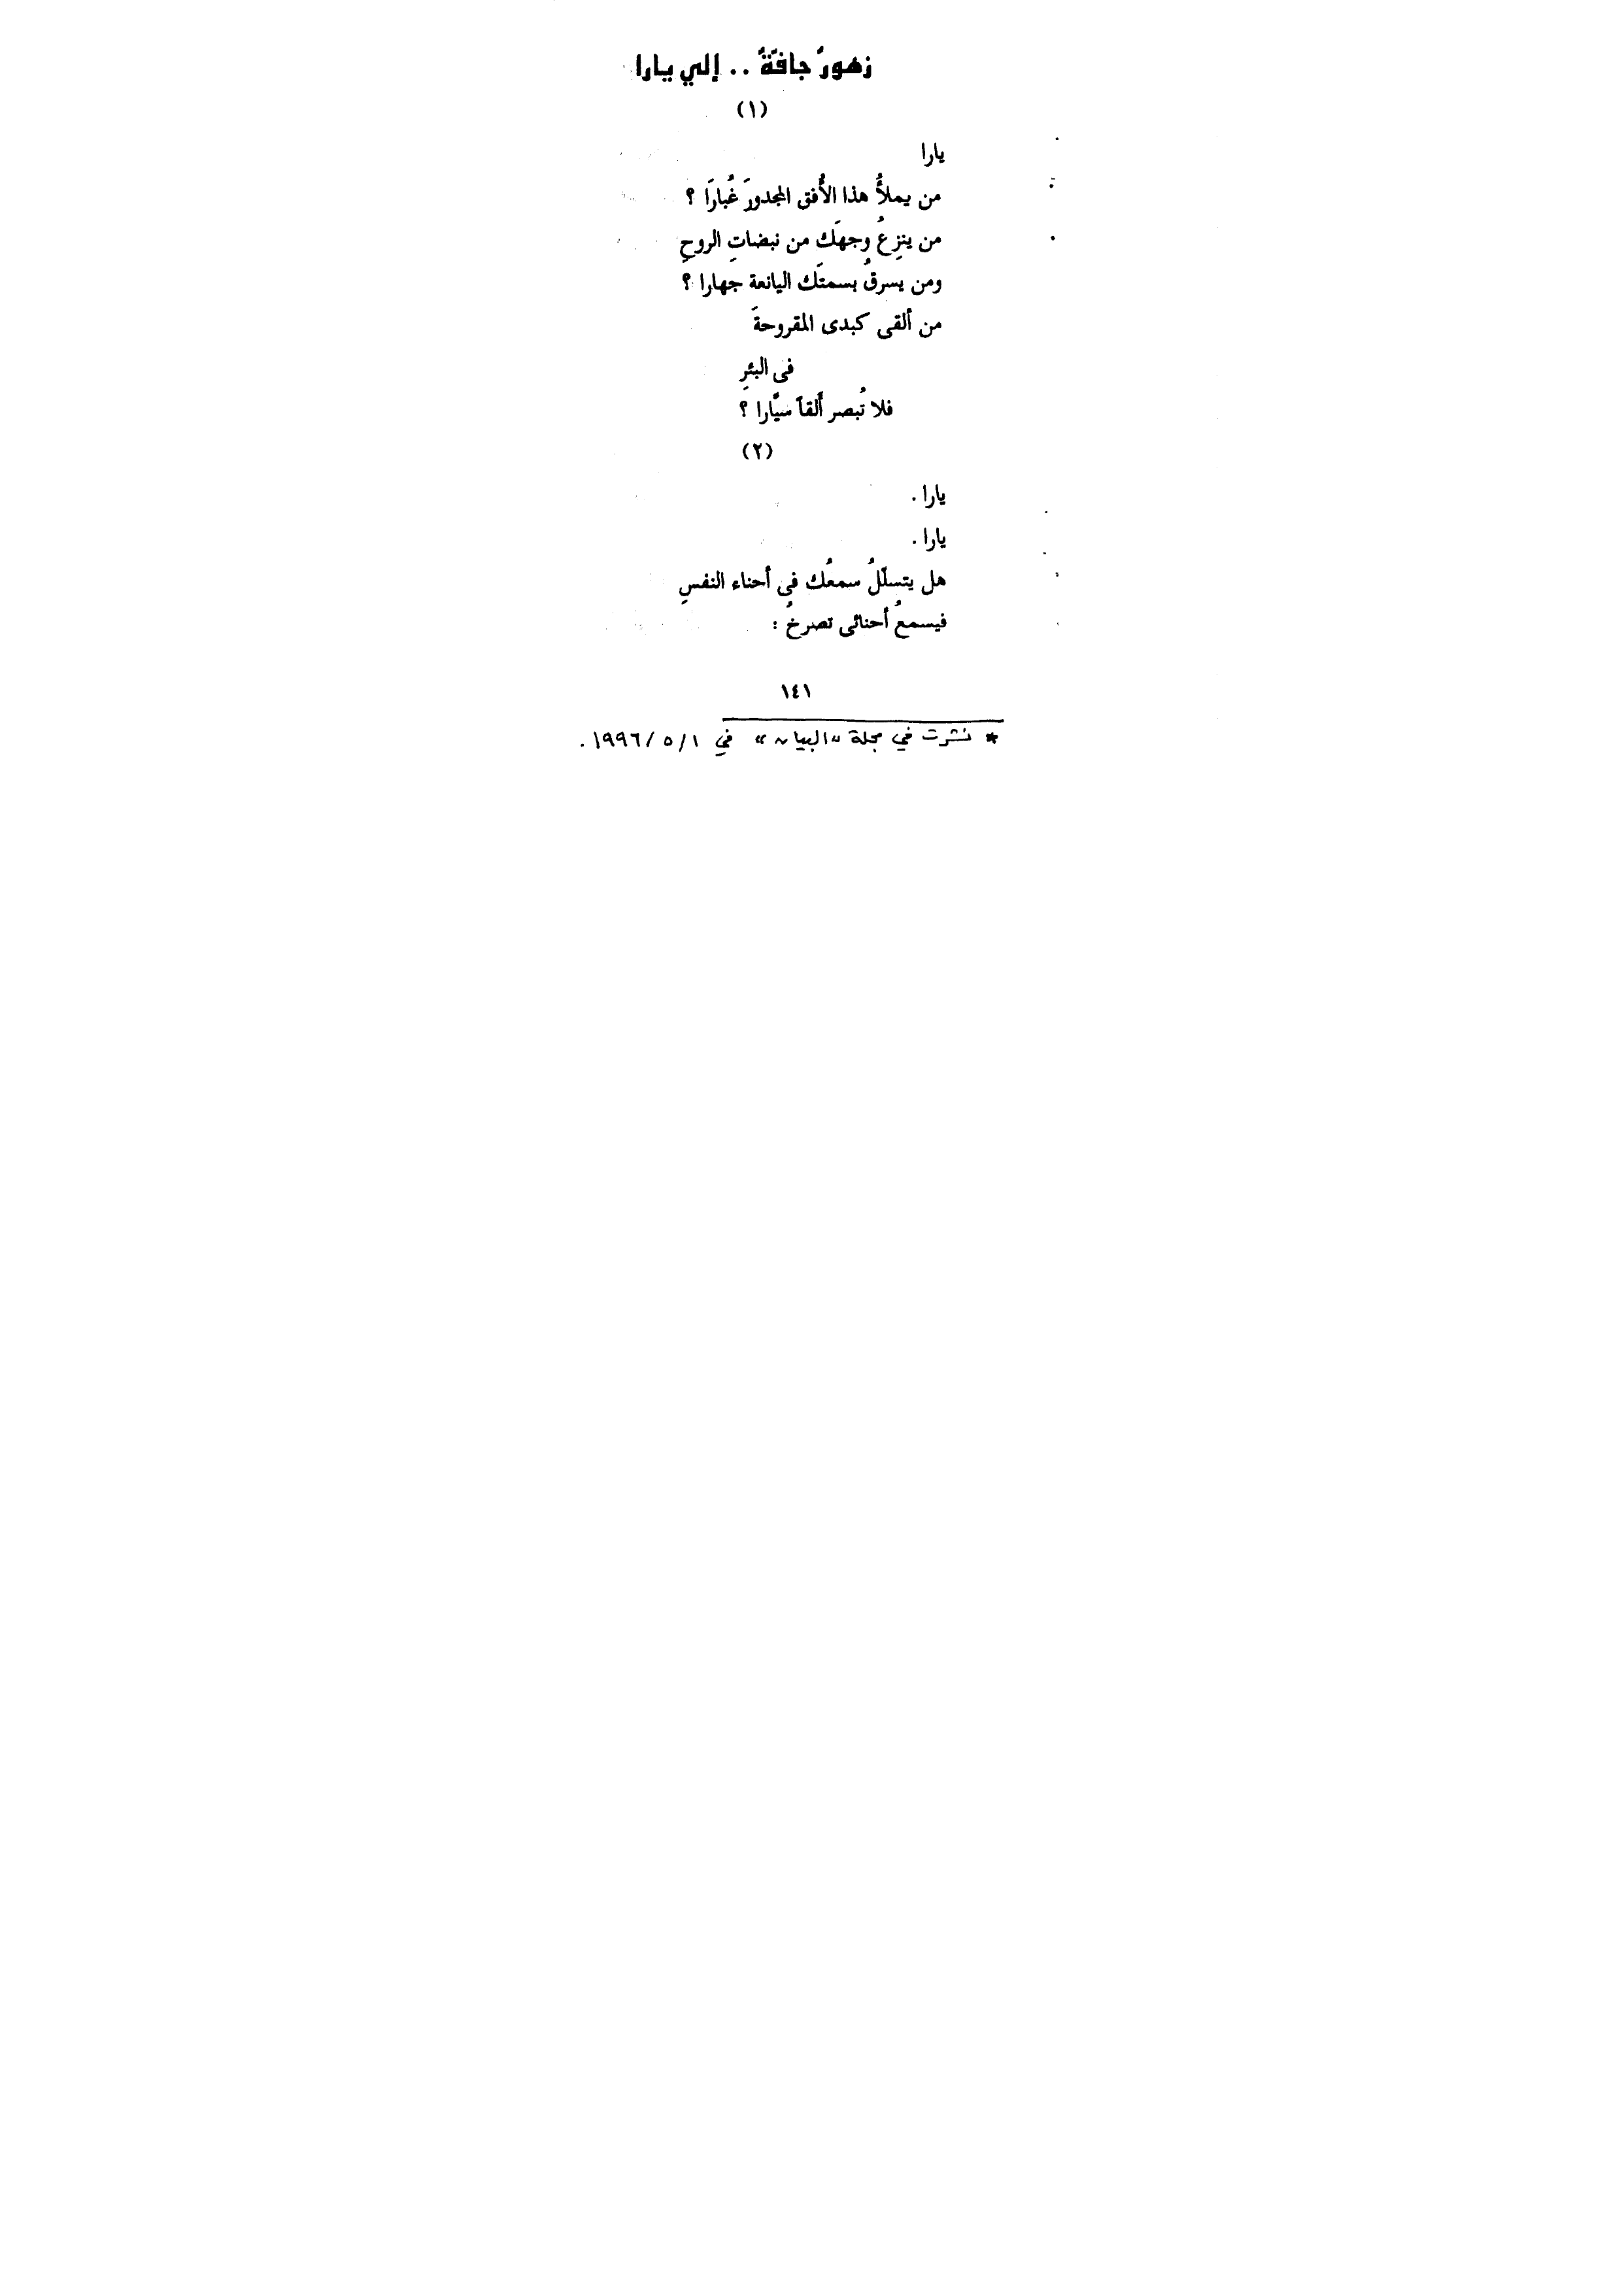 زهورٌ جافّةٌ .. إلي يارا
(١)
يارا
من يملأُ هذا الأُفق المجدورَ غُبارَا ؟
من ينزِعُ وجهَك من نبضاتِ الروحِ
ومن يسرقُ بسمتَك اليانعة جهارا ؟
من ألقى كبدى المقروحةَ
فى البئرِ
فلا تُبصر أَلقاً سيَّارا ؟
(٢)
يارا .
يارا .
هل يتسلّلُ سمعُك فى أحناء النفسِ
فيسمعُ أحنائى تصرخُ :
١٤١
* نشرت في مجلة «البيان» في ١/ ٥ /١٩٩٦.